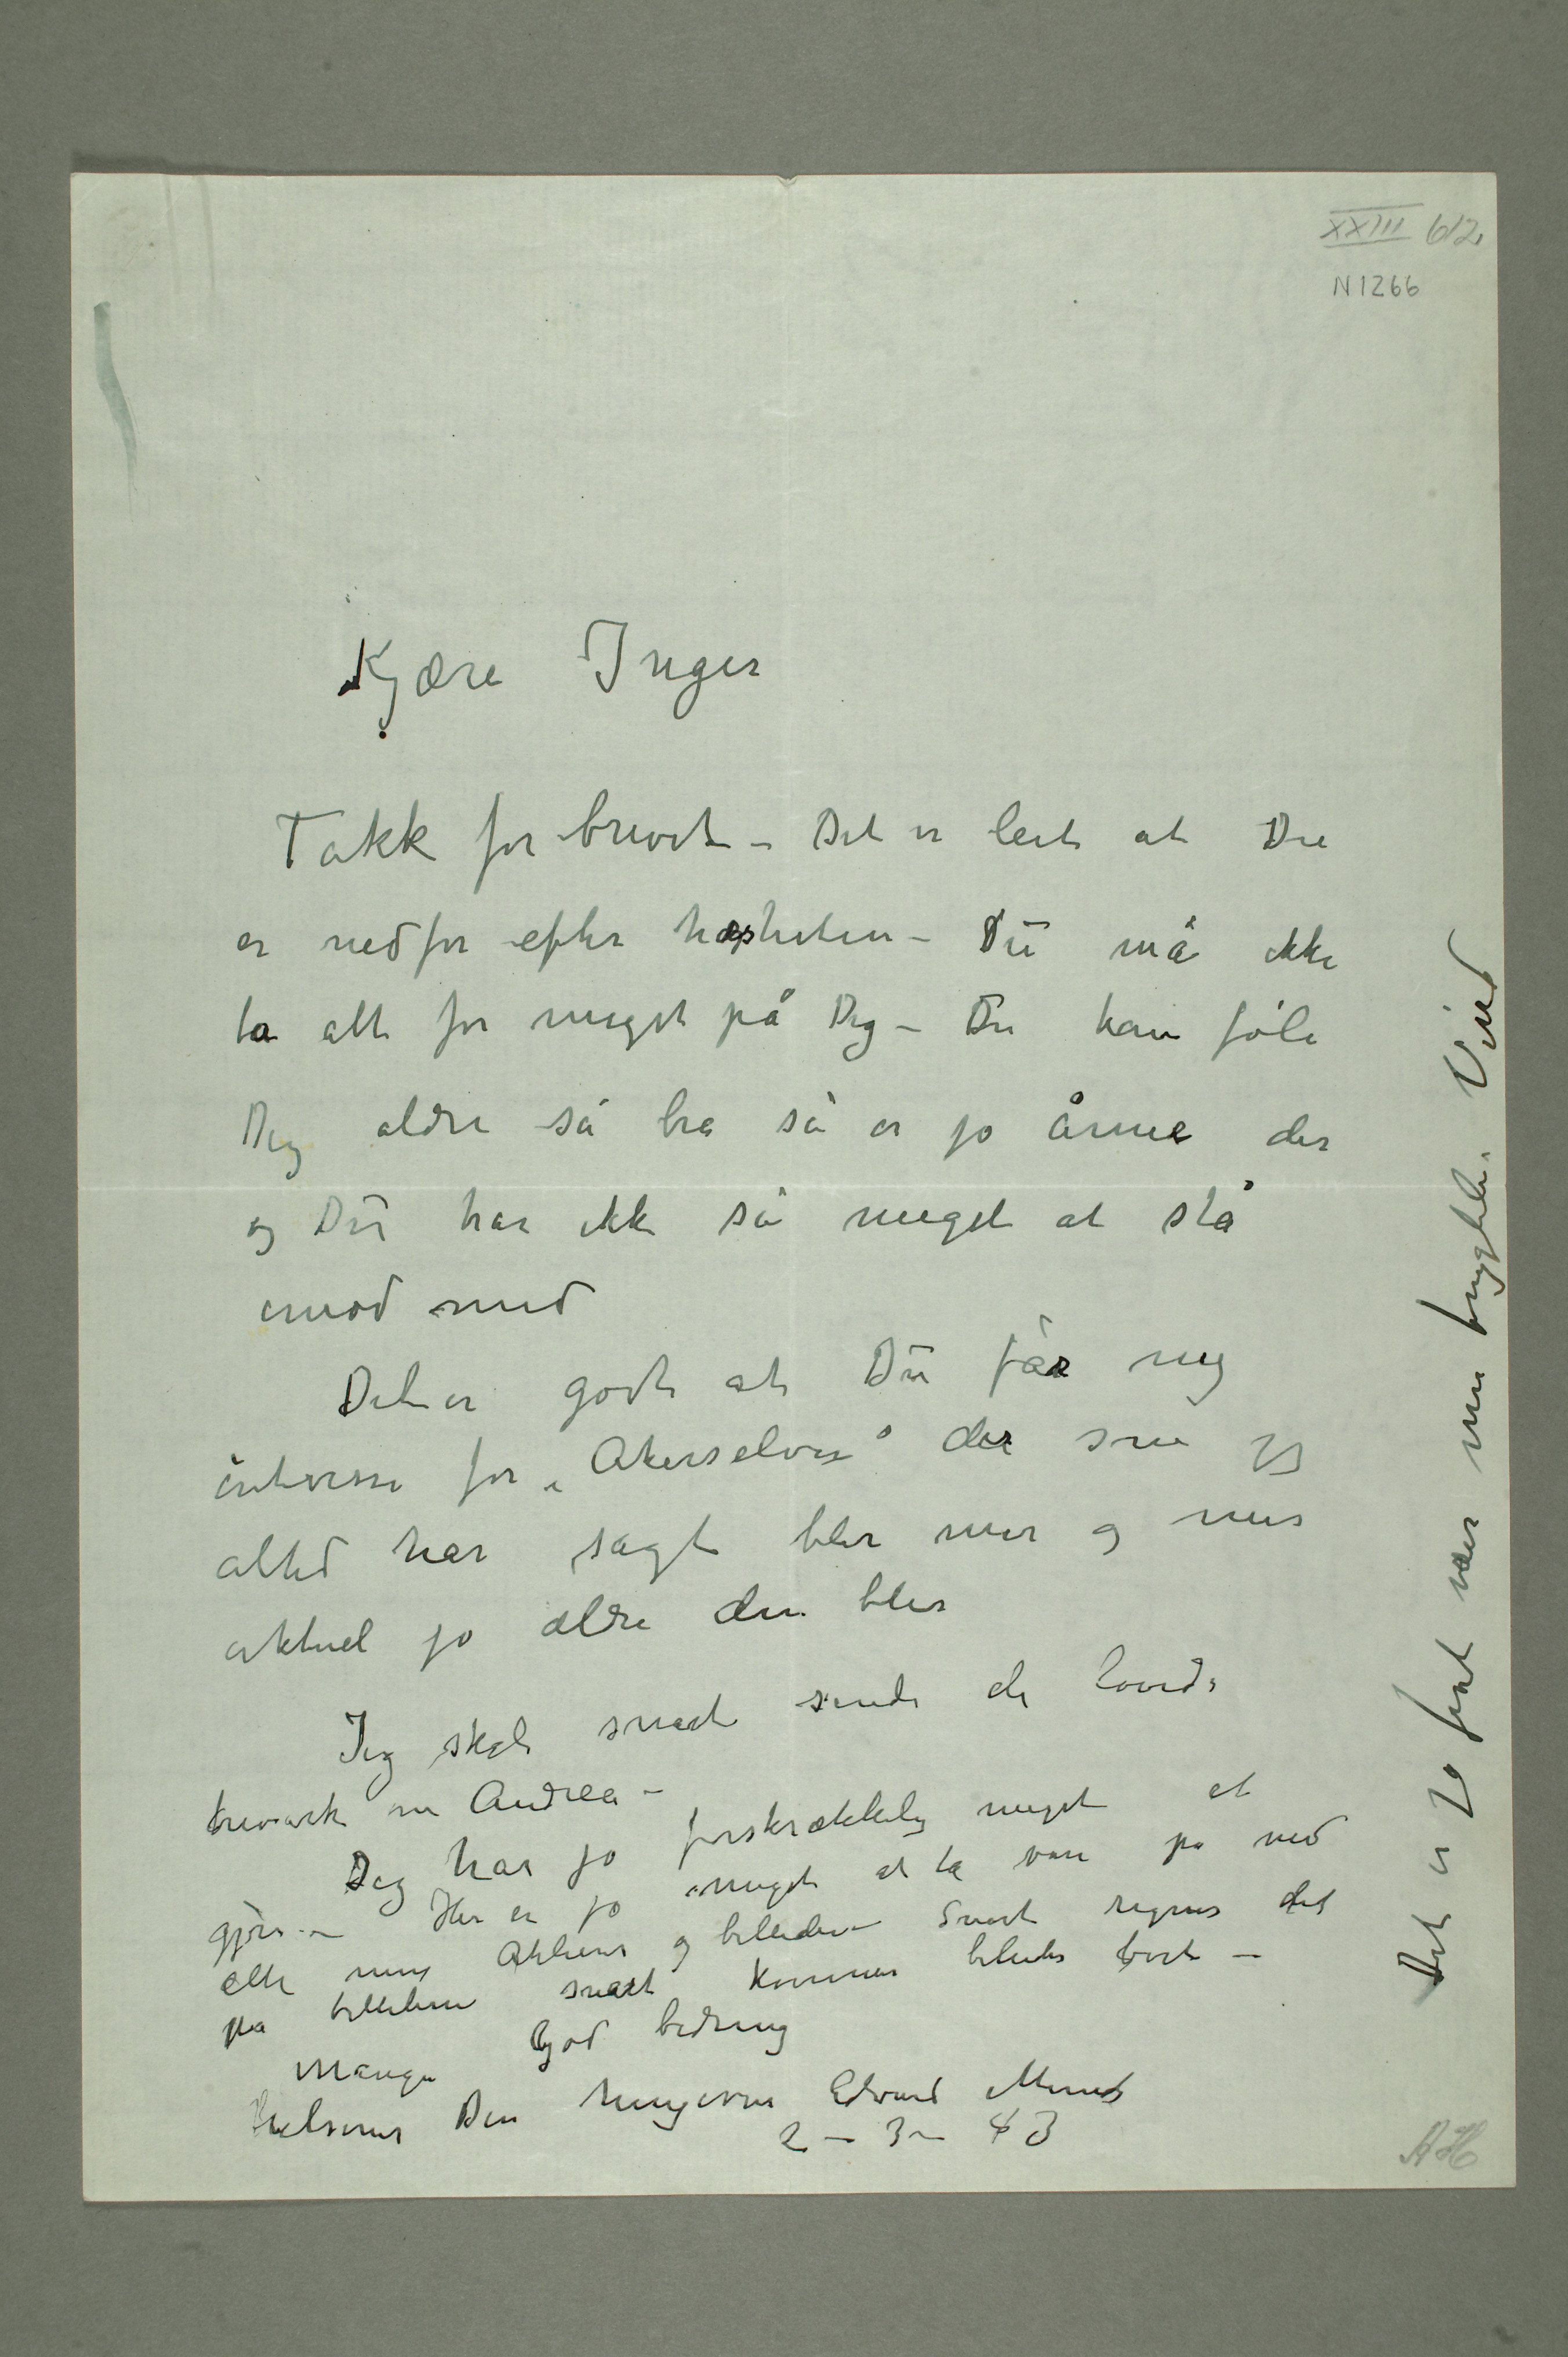 XXIII 612.
N 1266
Kjære Inger
Takk for brevet – Det er leit at Du
er nedfor efter hæsheten – Du må ikke
ta alt for meget på Deg – Du kan føle
Deg aldri så bra så er jo årene der
og Du har ikke så meget at stå
emod med
Det er godt at Du får ny
interesse for „Akerselven" der som jeg
altid har sagt blir mer og mer
aktuel jo ældre den blir
Jeg skal snart sende de lovede
om Andrea –
Jeg har jo forskrækkelig meget at
gjøre – Her er jo meget at ta vare på med
alle mine Atelierer og billeder – Snart regner det
på billederne snart kommer billeder bort –
God bedring
Mange
hilsener Din hengivne Edvard Munch
2 – 3 – 43
Det er 20 frost nær min hyggelige Vind
AH